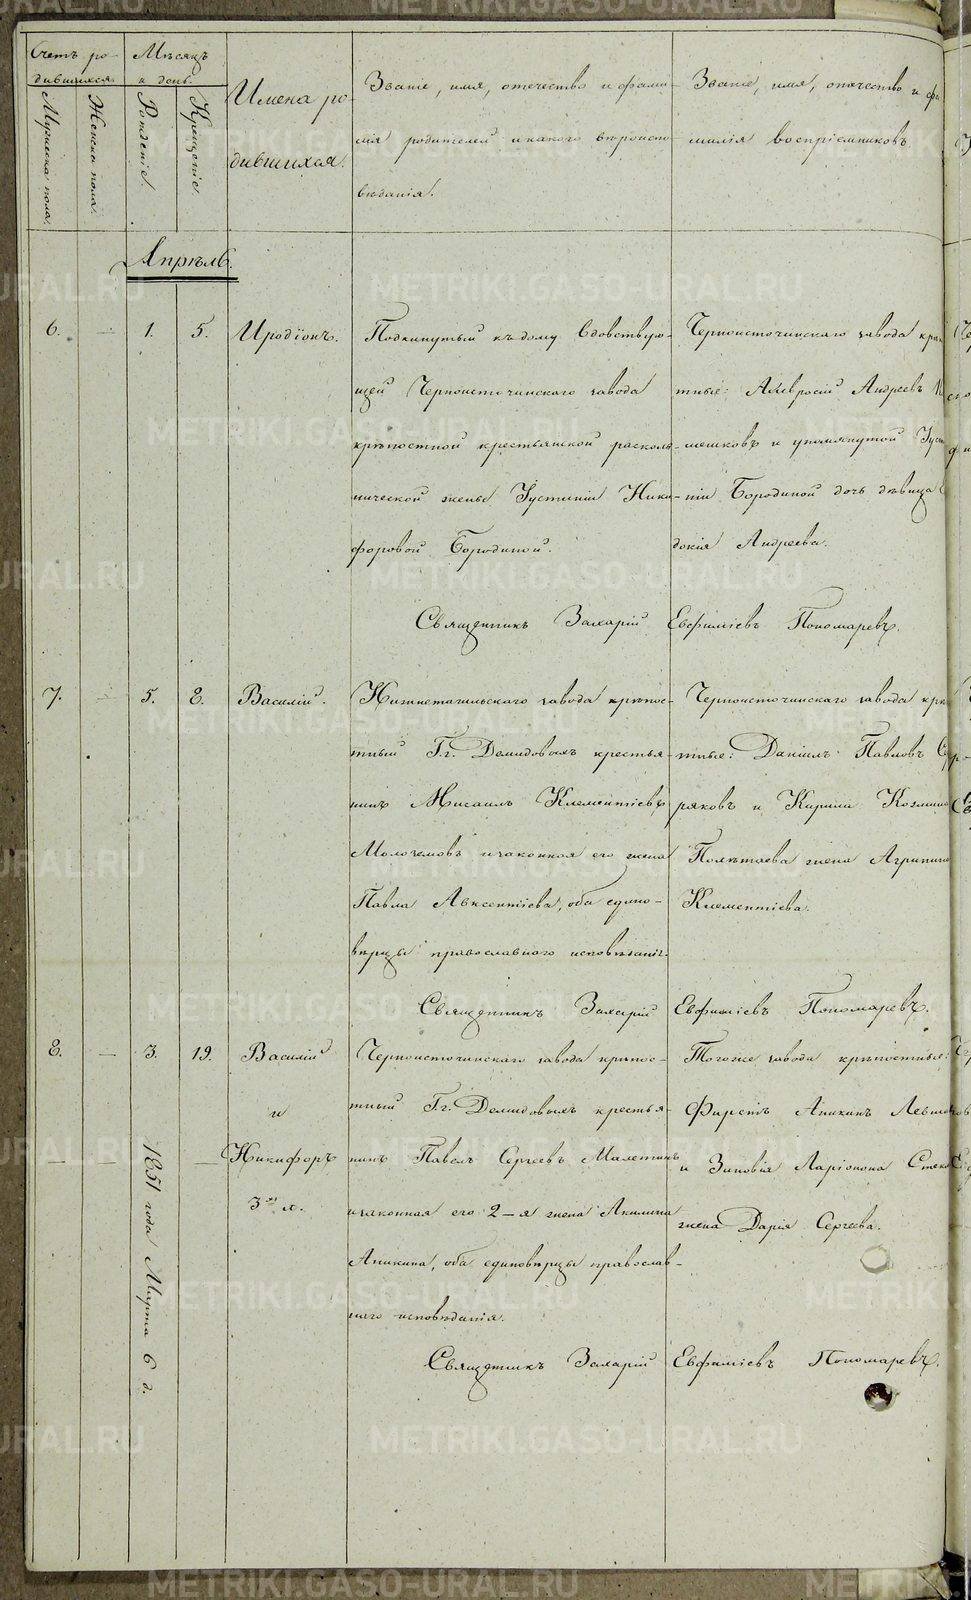 Счетъ ро-
дившихся
Мужеска пола.
Женска пола.
Мѣсяцъ
и день.
Рожденіе.
Крещеніе
Имена ро-
дившихся.
Званіе, имя, отечество и фами-
лія родителей и какого вѣроиспо-
вѣданія.
Званіе, имя, отечество и фа
милія воспріемниковъ
Апрѣль.
6. — 1. 5. Иродіонъ.
Подкинутый къ дому вдовствую-
щей Черноисточинскаго завода
крѣпостной крестьянской расколь-
нической жены Устиніи Ники-
форовой Бородиной.
Черноисточинскаго завода крѣ
тные: Амвросій Андреевъ
мешковъ и упомянутой Уст
ніи Бородиной дочь дѣвица
докія Андреева.
Священникъ Захарій Евфиміевъ Пономаревъ.
7. — 5. 8. Василій.
Нижнетагильскаго завода крѣпос-
тный Гг. Демидовыхъ крестья-
нинъ Мисаилъ Клементіевъ
Молоземовъ и законная его жена
Павла Авксентіева, оба едино-
вѣрцы православного исповѣданія.
Черноисточинскаго завода крѣп
тные: Даніилъ Павловъ
ряковъ и Кирила Козмина
Полѣтаева жена Агрипина
Клементіева.
Священникъ Захарій Евфиміевъ Пономаревъ.
8. — 3. 19. Василій
и
Никифоръ
3хъ л.
1851 года Марта 6 д.
Черноисточинскаго завода крѣпос-
тный Гг. Демидовыхъ крестья-
нинъ Павелъ Сергеевъ Малетинъ
и законная его 2-я жена Акилина
Аникина, оба единовѣрцы православ-
наго исповѣданія.
Тогоже завода крѣпостные:
Фирсъ Аникинъ
и Зиновія Ларіонова
жена Дарія Сергеева.
Священникъ Захарій Евфиміевъ Пономаревъ.
METRIKI.GASO-URAL.RU